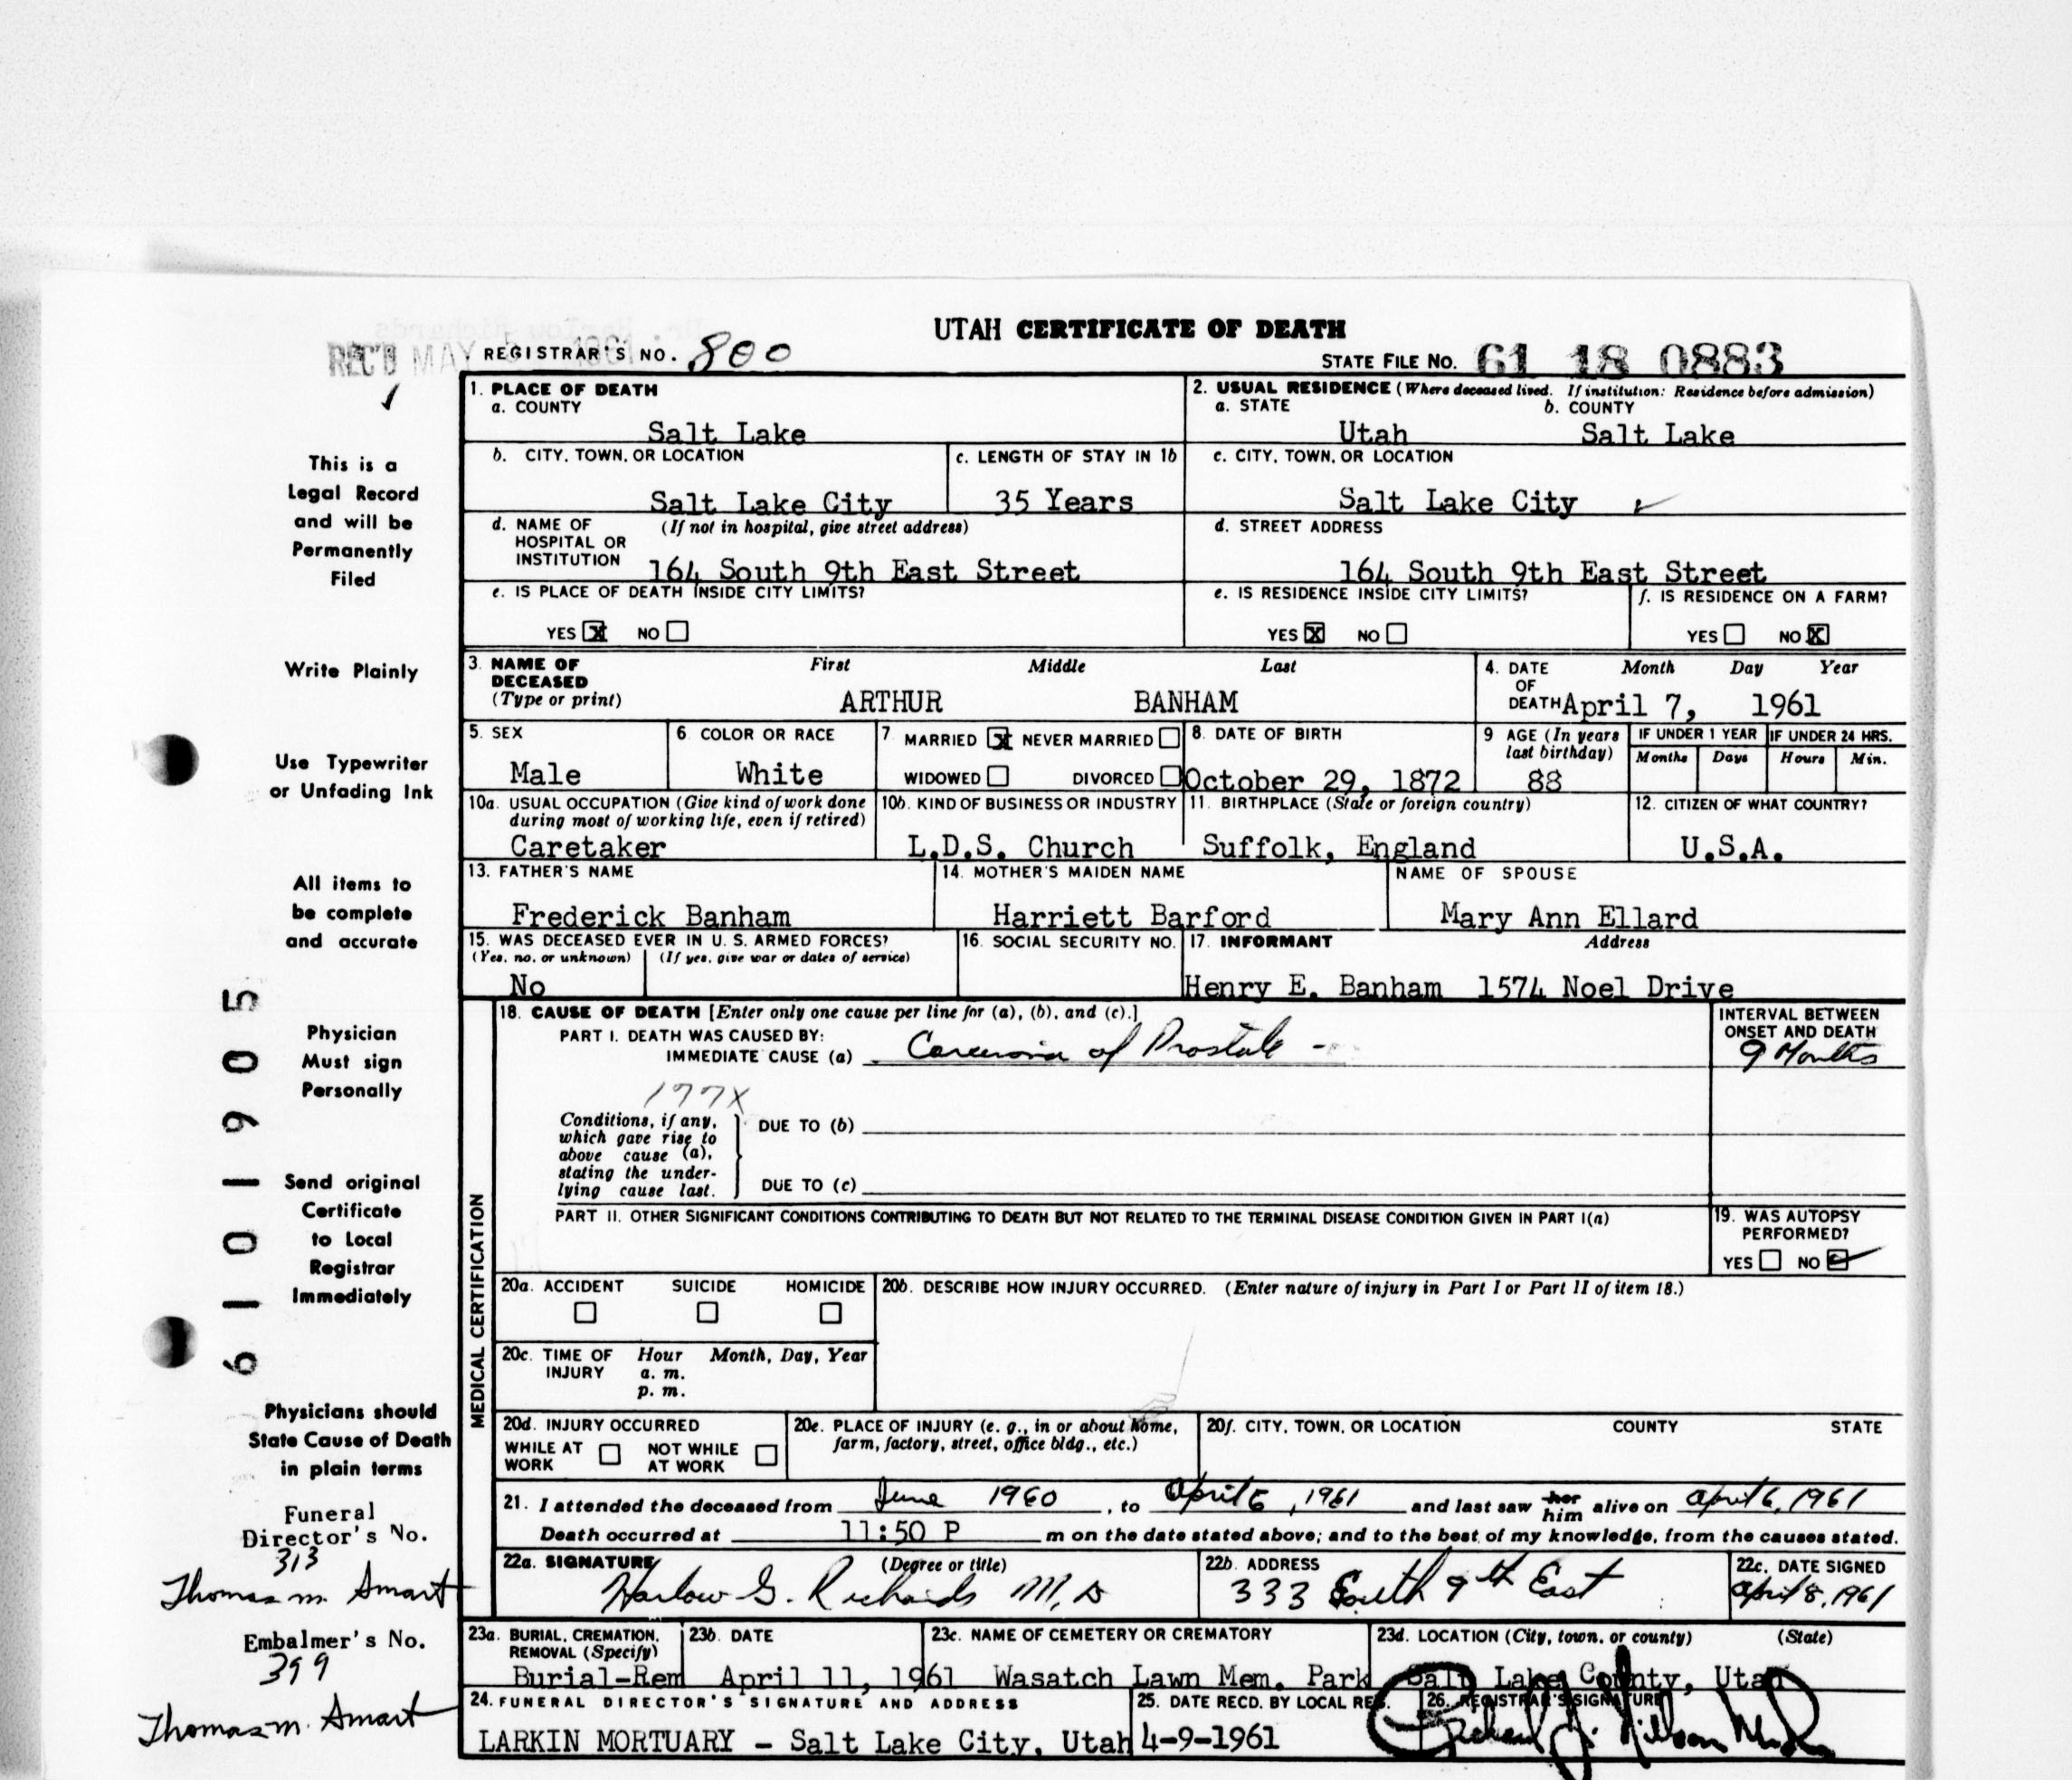 UTAH CERTIFICATE OF DEATH
REC'D MAY 1961 REGISTRAR'S NO. 800 STATE FILE NO. 61 18 0883
1. PLACE OF DEATH
a. COUNTY
Salt Lake
2. USUAL RESIDENCE (Where deceased lived. If institution: Residence before admission)
a. STATE b. COUNTY
Utah Salt Lake
b. CITY, TOWN, OR LOCATION
Salt Lake City
c. LENGTH OF STAY IN 1b
35 Years
c. CITY, TOWN, OR LOCATION
Salt Lake City
d. NAME OF HOSPITAL OR INSTITUTION (If not in hospital, give street address)
164 South 9th East Street
d. STREET ADDRESS
164 South 9th East Street
e. IS PLACE OF DEATH INSIDE CITY LIMITS?
YES X NO
e. IS RESIDENCE INSIDE CITY LIMITS?
YES X NO
f. IS RESIDENCE ON A FARM?
YES NO X
3. NAME OF DECEASED (Type or print) First Middle Last
ARTHUR BANHAM
4. DATE OF DEATH Month Day Year
April 7, 1961
5. SEX
Male
6. COLOR OR RACE
White
7. MARRIED X NEVER MARRIED
WIDOWED DIVORCED
8. DATE OF BIRTH
October 29, 1872
9 AGE (In years last birthday)
88
IF UNDER 1 YEAR
Months Days
IF UNDER 24 HRS.
Hours Min.
10a. USUAL OCCUPATION (Give kind of work done during most of working life, even if retired)
Caretaker
10b. KIND OF BUSINESS OR INDUSTRY
L.D.S. Church
11. BIRTHPLACE (State or foreign country)
Suffolk, England
12. CITIZEN OF WHAT COUNTRY?
U.S.A.
13. FATHER'S NAME
Frederick Banham
14. MOTHER'S MAIDEN NAME
Harriett Barford
NAME OF SPOUSE
Mary Ann Ellard
15. WAS DECEASED EVER IN U. S. ARMED FORCES?
(Yes, no, or unknown) (If yes, give war or dates of service)
No
16. SOCIAL SECURITY NO.
17. INFORMANT Address
Henry E. Banham 1574 Noel Drive
MEDICAL CERTIFICATION
18. CAUSE OF DEATH [Enter only one cause per line for (a), (b), and (c).]
PART I. DEATH WAS CAUSED BY:
IMMEDIATE CAUSE (a) Carcinoma of Prostate -
INTERVAL BETWEEN ONSET AND DEATH
9 Months
177X
Conditions, if any, which gave rise to above cause (a), stating the underlying cause last.
DUE TO (b)
DUE TO (c)
PART II. OTHER SIGNIFICANT CONDITIONS CONTRIBUTING TO DEATH BUT NOT RELATED TO THE TERMINAL DISEASE CONDITION GIVEN IN PART I(a)
19. WAS AUTOPSY PERFORMED?
YES NO
20a. ACCIDENT SUICIDE HOMICIDE
20b. DESCRIBE HOW INJURY OCCURRED. (Enter nature of injury in Part I or Part II of item 18.)
20c. TIME OF INJURY Hour Month, Day, Year
a. m.
p. m.
20d. INJURY OCCURRED
WHILE AT WORK NOT WHILE AT WORK
20e. PLACE OF INJURY (e. g., in or about home, farm, factory, street, office bldg., etc.)
20f. CITY, TOWN, OR LOCATION COUNTY STATE
21. I attended the deceased from June 1960, to April 6, 1961 and last saw her him alive on April 6, 1961
Death occurred at 11:50 P m on the date stated above; and to the best of my knowledge, from the causes stated.
22a. SIGNATURE (Degree or title)
Harlow G. Richards M.D
22b. ADDRESS
333 South 9th East
22c. DATE SIGNED
April 8, 1961
23a. BURIAL, CREMATION, REMOVAL (Specify)
Burial-Rem
23b. DATE
April 11, 1961
23c. NAME OF CEMETERY OR CREMATORY
Wasatch Lawn Mem. Park
23d. LOCATION (City, town, or county) (State)
Salt Lake County, Utah
24. FUNERAL DIRECTOR'S SIGNATURE AND ADDRESS
LARKIN MORTUARY - Salt Lake City, Utah
25. DATE RECD. BY LOCAL REG.
4-9-1961
26. REGISTRAR'S SIGNATURE
This is a
Legal Record
and will be
Permanently
Filed
Write Plainly
Use Typewriter
or Unfading Ink
All items to
be complete
and accurate
Physician
Must sign
Personally
Send original
Certificate
to Local
Registrar
Immediately
Physicians should
State Cause of Death
in plain terms
Funeral
Director's No.
313
Thomas M. Smart
Embalmer's No.
399
Thomas M. Smart
6101905